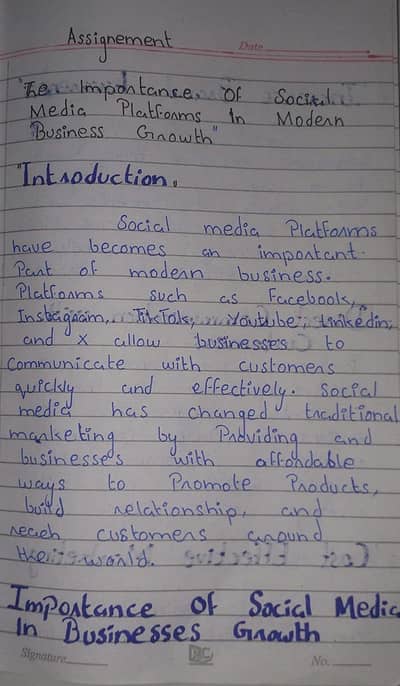 Assignement
Date
"The Importance Of Social
Media Platforms In Modern
Business Growth"
"Introduction.
Social media Platforms
have becomes an important
Part of modern business.
Platforms such as Facebook,
Instagram, TikTok, Youtube, Linkedin,
and X allow businesses to
Communicate with customers
quickly and effectively. Social
media has changed traditional
marketing by Providing and
businesses with affordable
ways to Promote Products,
build relationship, and
reach customers around
the world.
Importance Of Social Media
In Businesses Growth
Signature
No.